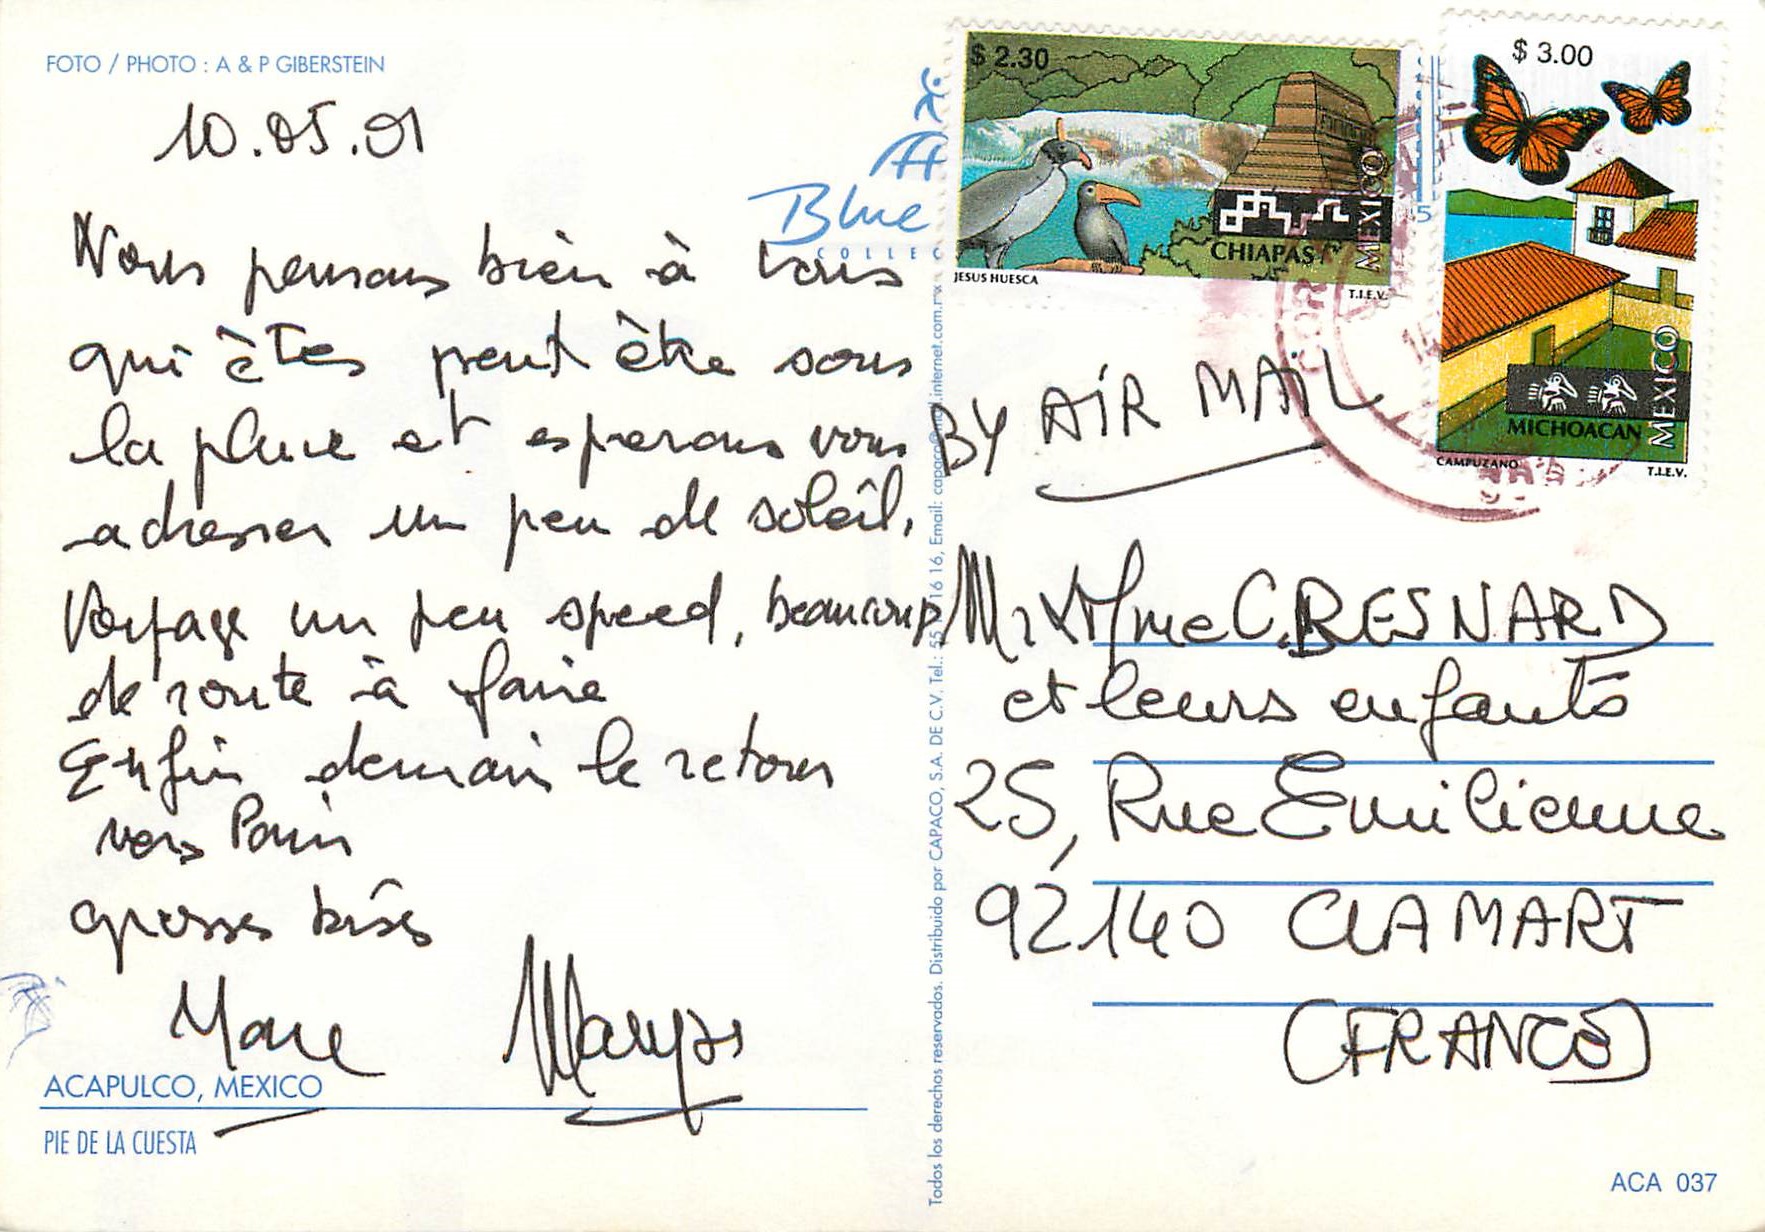 FOTO / PHOTO : A & P GIBERSTEIN
10.05.01
Nous pensons bien à vous
qui êtes peut être sous
la pluie et esperons vous
adresser un peu de soleil.
Voyage un peu speed, beaucoup
de route à faire
Enfin demain le retour
vers Paris
grosses bises
Marc Maryse
ACAPULCO, MEXICO
PIE DE LA CUESTA
Blue
COLLEC
Todos los derechos reservados. Distribuido por CAPACO, S.A. DE C.V. Tel.: 55 16 16, Email: capaco internet.com.mx
$ 2.30
CHIAPAS
MEXICO
JESUS HUESCA
T.I.E.V.
$ 3.00
MICHOACAN
MEXICO
CAMPUZANO
T.I.E.V.
BY AIR MAIL
Mr & Mme C. BESNARD
et leurs enfants
25, Rue Emilienne
92140 CLAMART
(FRANCE)
ACA 037